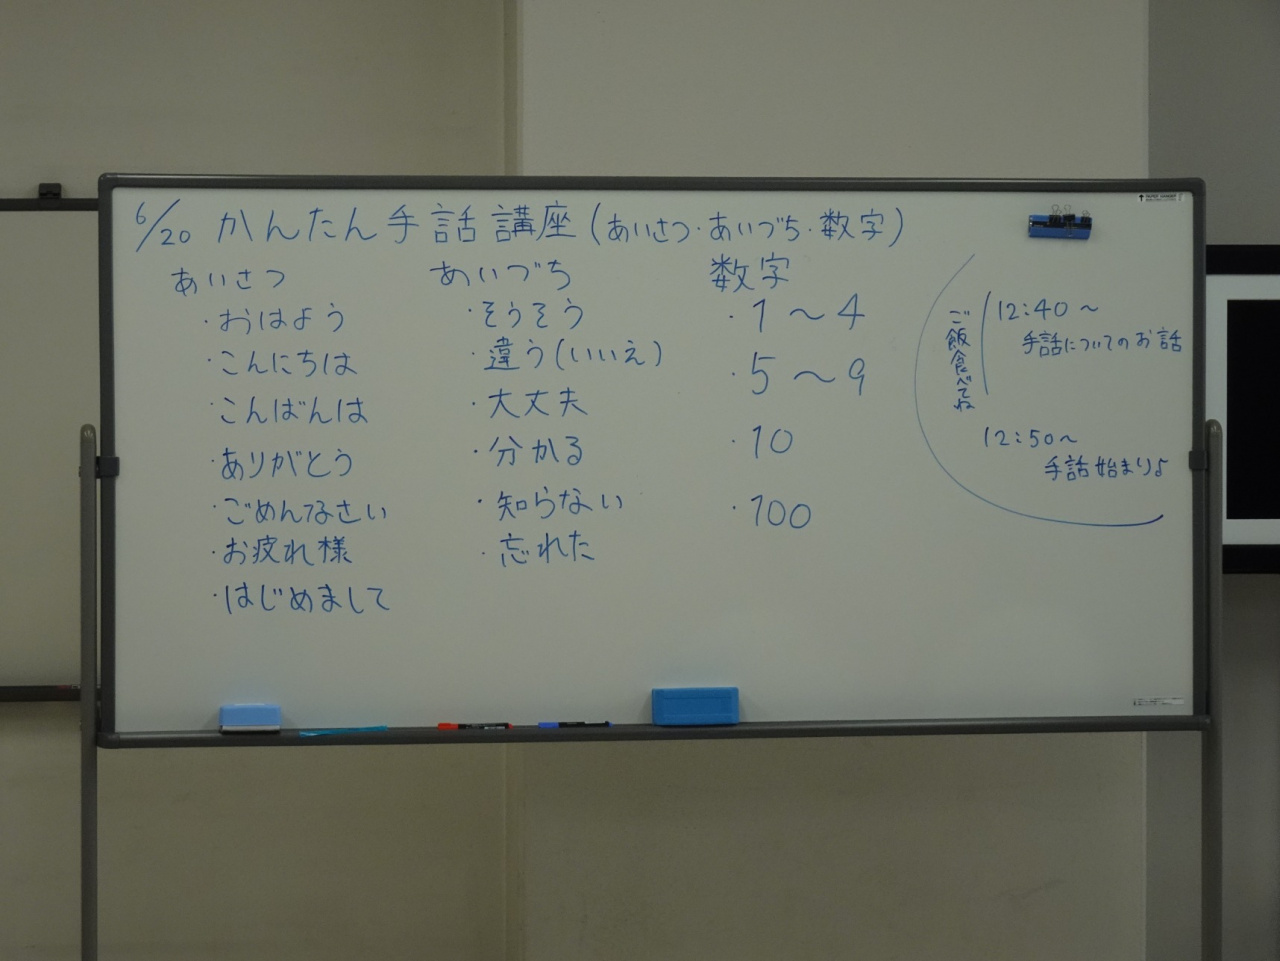 6/20 かんたん手話講座(あいさつ・あいづち・数字)
あいさつ
・おはよう
・こんにちは
・こんばんは
・ありがとう
・ごめんなさい
・お疲れ様
・はじめまして
あいづち
・そうそう
・違う(いいえ)
・大丈夫
・分かる
・知らない
・忘れた
数字
・1〜4
・5〜9
・10
・100
ご飯食べてね
12:40〜
手話についてのお話
12:50〜
手話始まり♪